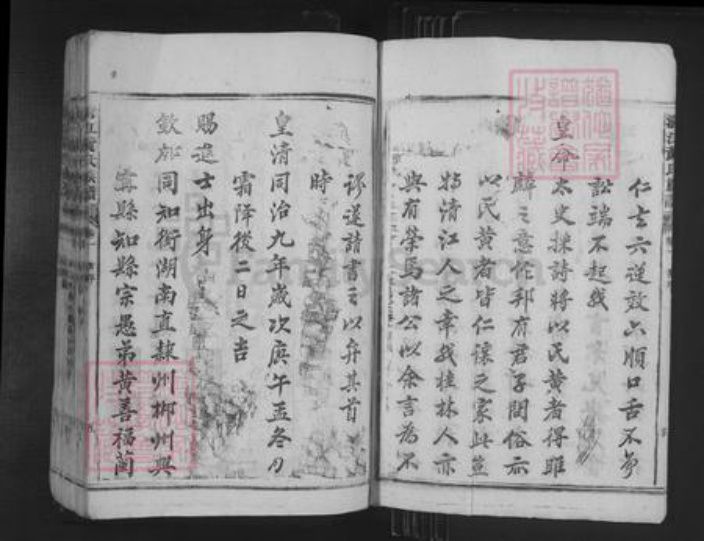 仁去六逆效六順口舌不爭
訟端不起我
皇命
太史採詩將以民黃者得睢
麟之意伦邦有君子問俗亦
以民黃者皆仁讓之家此豈
特清江人之幸我桂林人亦
與有榮焉諸公以余言為不
謬遂請書之以弁其首
時
皇清同治九年歲次庚午孟冬月
霜降後二日之吉
賜進士出身
欽加同知銜湖南直隸州郴州興
寧縣知縣宗愚弟黃善福蘭
FamilySearch